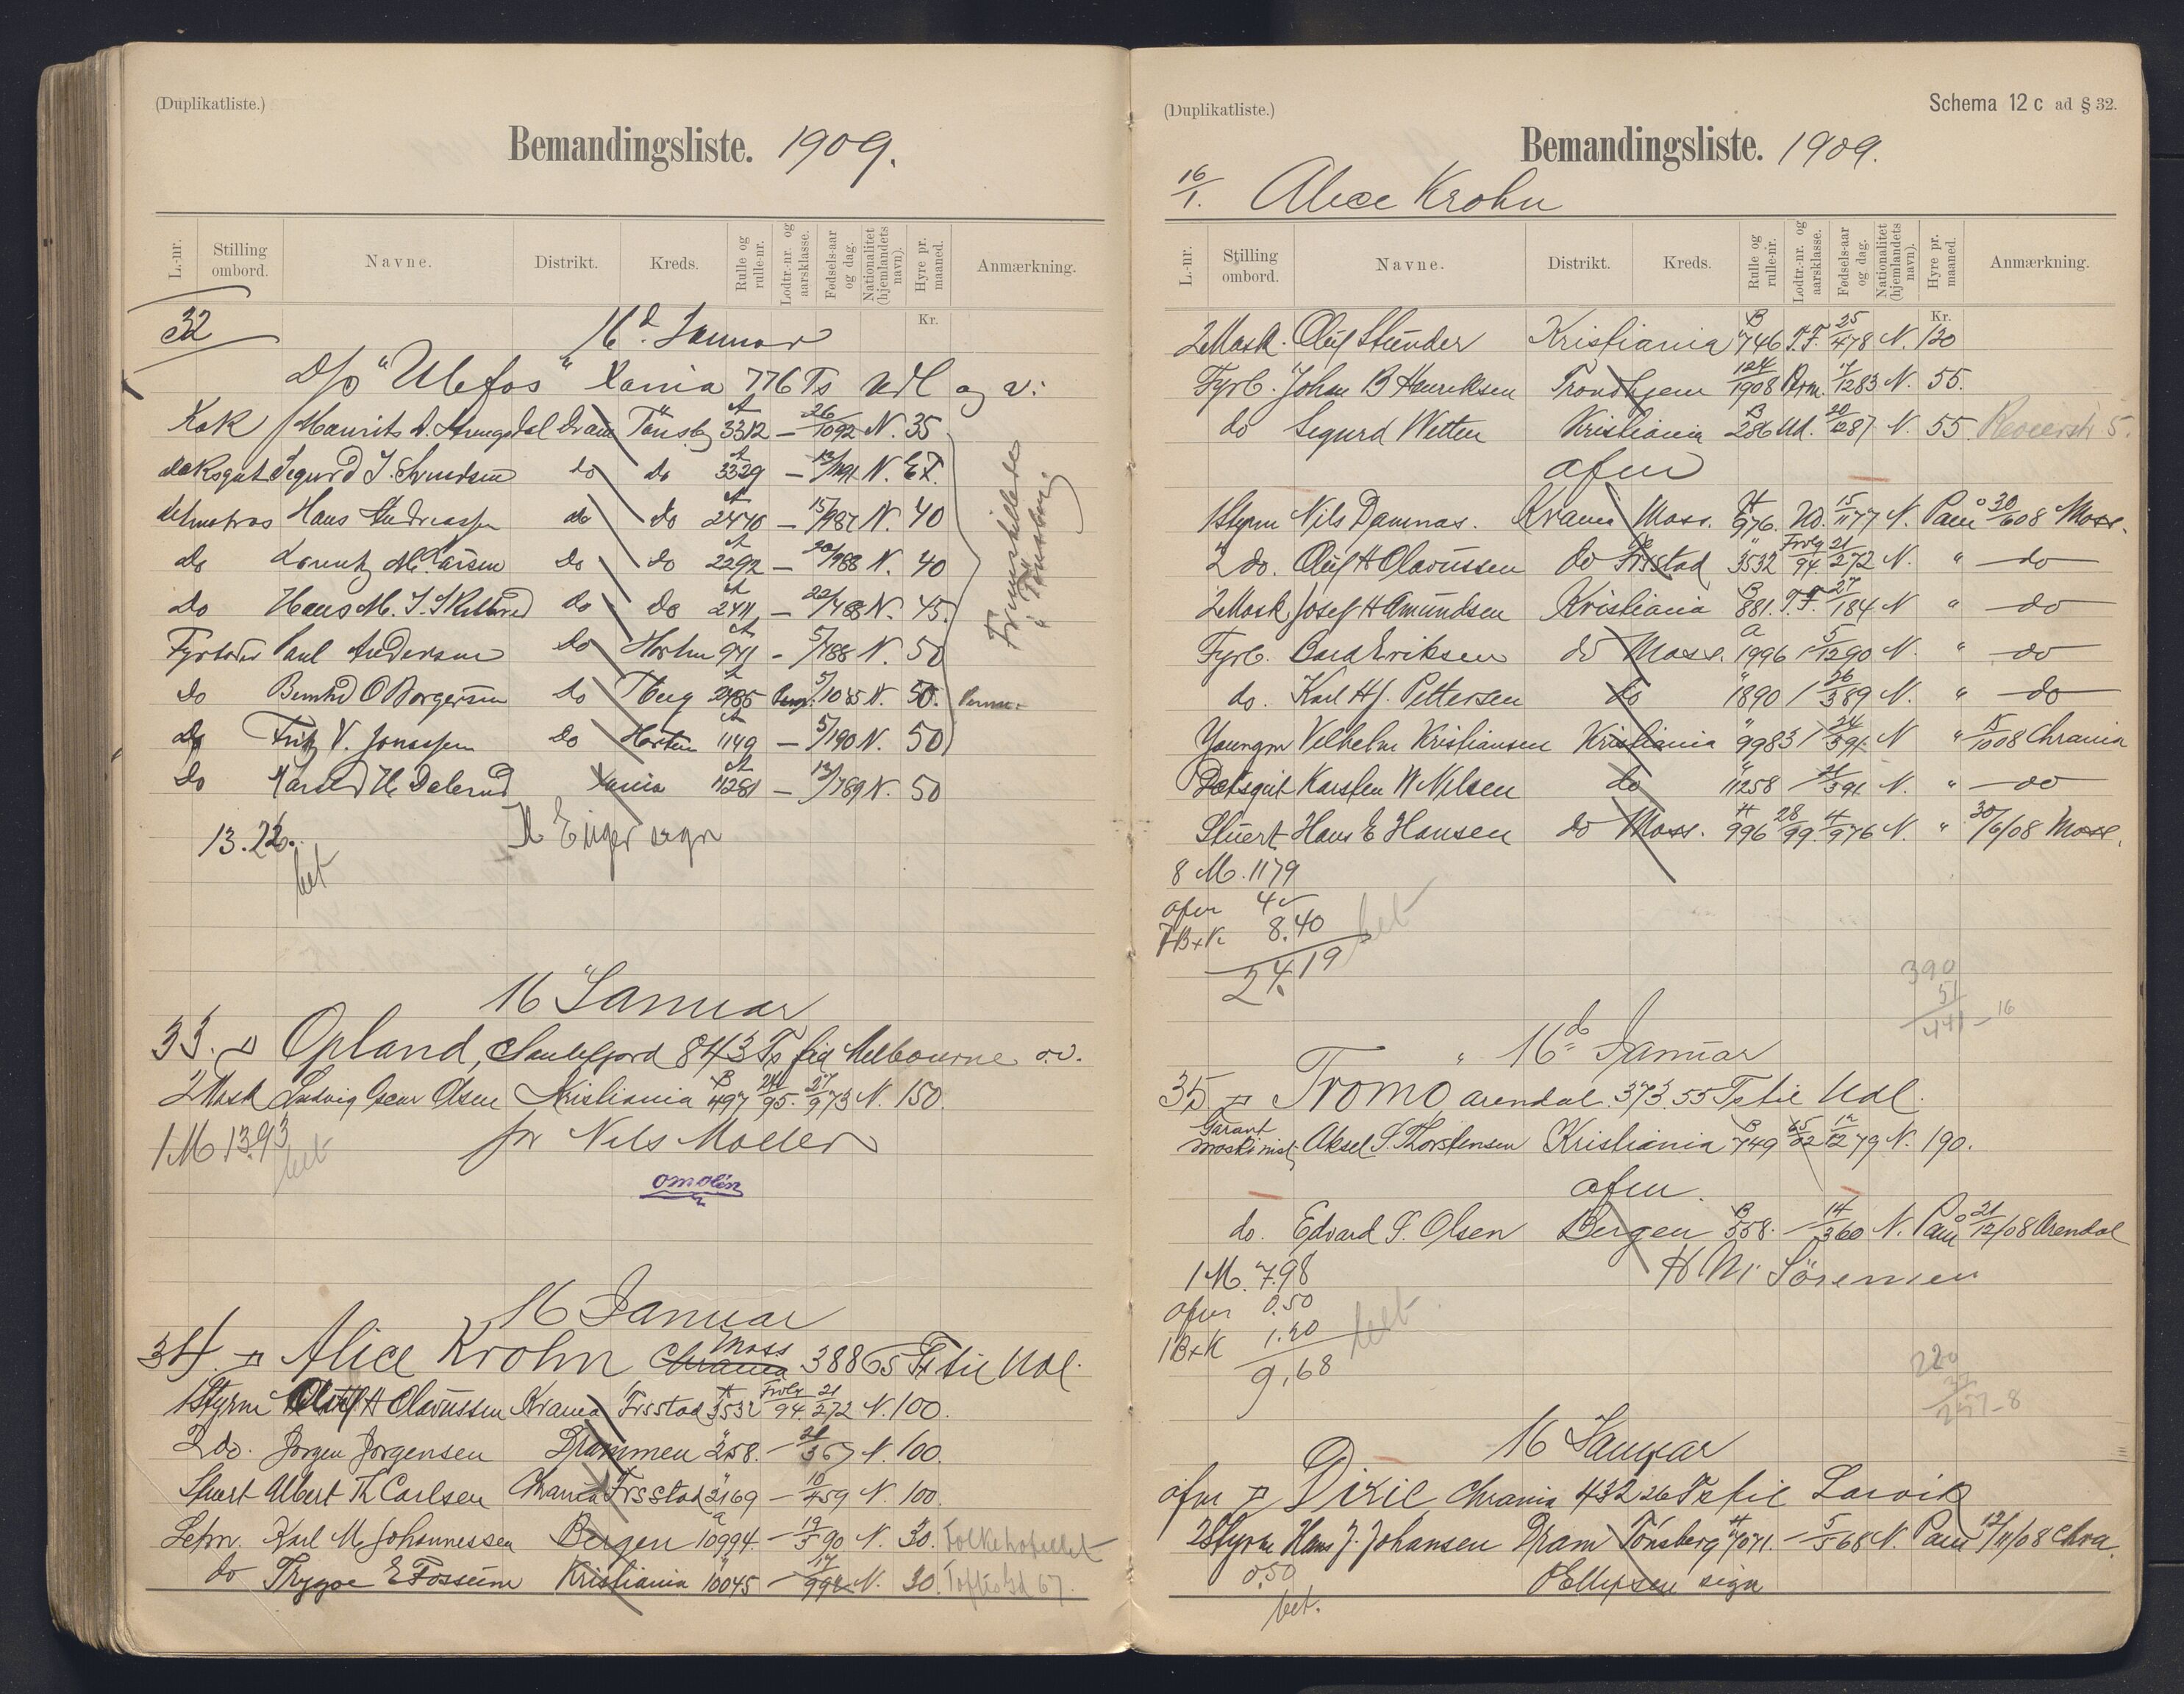 (Duplikatliste.)
Bemandingsliste. 1909.
L.-nr. Stilling ombord. Navne. Distrikt. Kreds. Rulle og rulle-nr. Lodtr.-nr. og aarsklasse. Fødsels-aar og dag. Nationalitet (hjemlandets navn). Hyre pr. maaned. Anmærkning.
Kr.
32 16d. Januar
D/s "Ulefos" Xania 776 Ts Udl og v:
Kok Mourits A. Dram Tönsbg A 3312 — 26/10 92 N. 35
Sigurd J. do do A 3329 — N. E.F.
Hans Andreassen do do A 2470 — 15/9 87 N. 40
do M. Larsen do do A 2292 — 20/9 88 N. 40
do Hans M. J. do do A 2411 — 22/4 88 N. 45.
Paul Andersen do Horten A 941 - 5/7 88 N. 50
do O Borgersen do Tberg A 2485 5/10 85 N. 50.
do Fritz V. Jonassen do Horten A 1149 — 5/1 90 N. 50
do H. Dalerud Xania A 11281 — 12/7 89 N. 50
i Tönsberg
13.22. Eiger sign
bet
16 Januar
33. Opland, Sandefjord 843 Ts Melbourne o.v.
2 Mask Ludvig Oscar Olsen Kristiania B 497 95. 27/9 73 N. 150.
1 M 13.93 for Nils Moller
bet
omolin
16 Januar
34. Alice Krohn Chrania Moss 388 65 Ts til Udl.
1 Styrm Oluf H Olavussen Krania Frsstad A 3532 Frvlg 94. 21/2 72 N. 100.
2 do. Jørgen Jørgensen Drammen " 258. — 21/3 67 N. 100.
Stuert Albert Th Carlsen Krania Frsstad " 2169 — 10/4 59 N. 100.
Letm. Karl M. Johannessen Bergen a 10994. — 19/5 90 N. 30. Folkehotellet
do Trygve E Fossum Kristiania " 10045 — N. 30. Toftes Gd 67.
(Duplikatliste.) Schema 12 c ad § 32.
Bemandingsliste. 1909.
16/1. Alice Krohn
L.-nr. Stilling ombord. Navne. Distrikt. Kreds. Rulle og rulle-nr. Lodtr.-nr. og aarsklasse. Fødsels-aar og dag. Nationalitet (hjemlandets navn). Hyre pr. maaned. Anmærkning.
Kr.
2 Mask. Oluf Stunder Kristiania B 746 T.F. 25/4 78 N. 120
Fyrb. Johan B Henriksen Trondhjem 1908 12 83 N. 55.
do Sigurd Wetten Kristiania B 286 Ud. 20/12 87 N. 55.
afm
1 Styrm Nils Damnas. Krania Moss. A 976. Ud. 15/11 77 N. Paam 30/6 08 Moss.
2 do. Oluf H Olavussen do Frsstad " 3532 Frvlg 94. 21/2 72 N. " — do —
2 Mask. Josef H Amundsen Kristiania B 881. T.F. 27/1 84 N " — do —
Fyrb. Eriksen do Moss. a 1996 1 5/12 90 N. " — do —
do. Karl Hj. Pettersen do " 1890 1 26/3 89 N. " — do —
Youngm Vilhelm Kristiansen Kristiania " 9983 1 24/3 91. N " 15/10 08 Chrania
Dæksgut Karsten W Nilsen do " 11258 — 21/3 91. N. " — do —
Stuert Hans E Hansen do Moss. A 996 28/99. 4/9 76 N. " 30/6/08 Moss.
8 M. 11.79
afm 4 -
7 B+K 8.40
24.19
bet
390
51
441 - 16
16de Januar
35 Tromo Arendal. 373.55 Ts til Udl.
Garant maskinist. Aksel S. Thorstensen Kristiania B 749 65/02 12/12 79 N. 190.
afm.
do. Edvard S. Olsen Bergen B 558. — 14/3 60 N. Paam 21/12/08 Arendal
H M Sörensen
1 M. 7.98
afm 0.50
1 B+K 1.20
9,68
bet
220
16 Januar
afm Dixie Chrania 432 26 Ts til Larvik
2 Styrm Hans J. Johansen Dram Tönsberg A 7071. — 5/5 68 N. Paam 12/11/08 Chra.
0.50 P Ellefsen sign
bet.